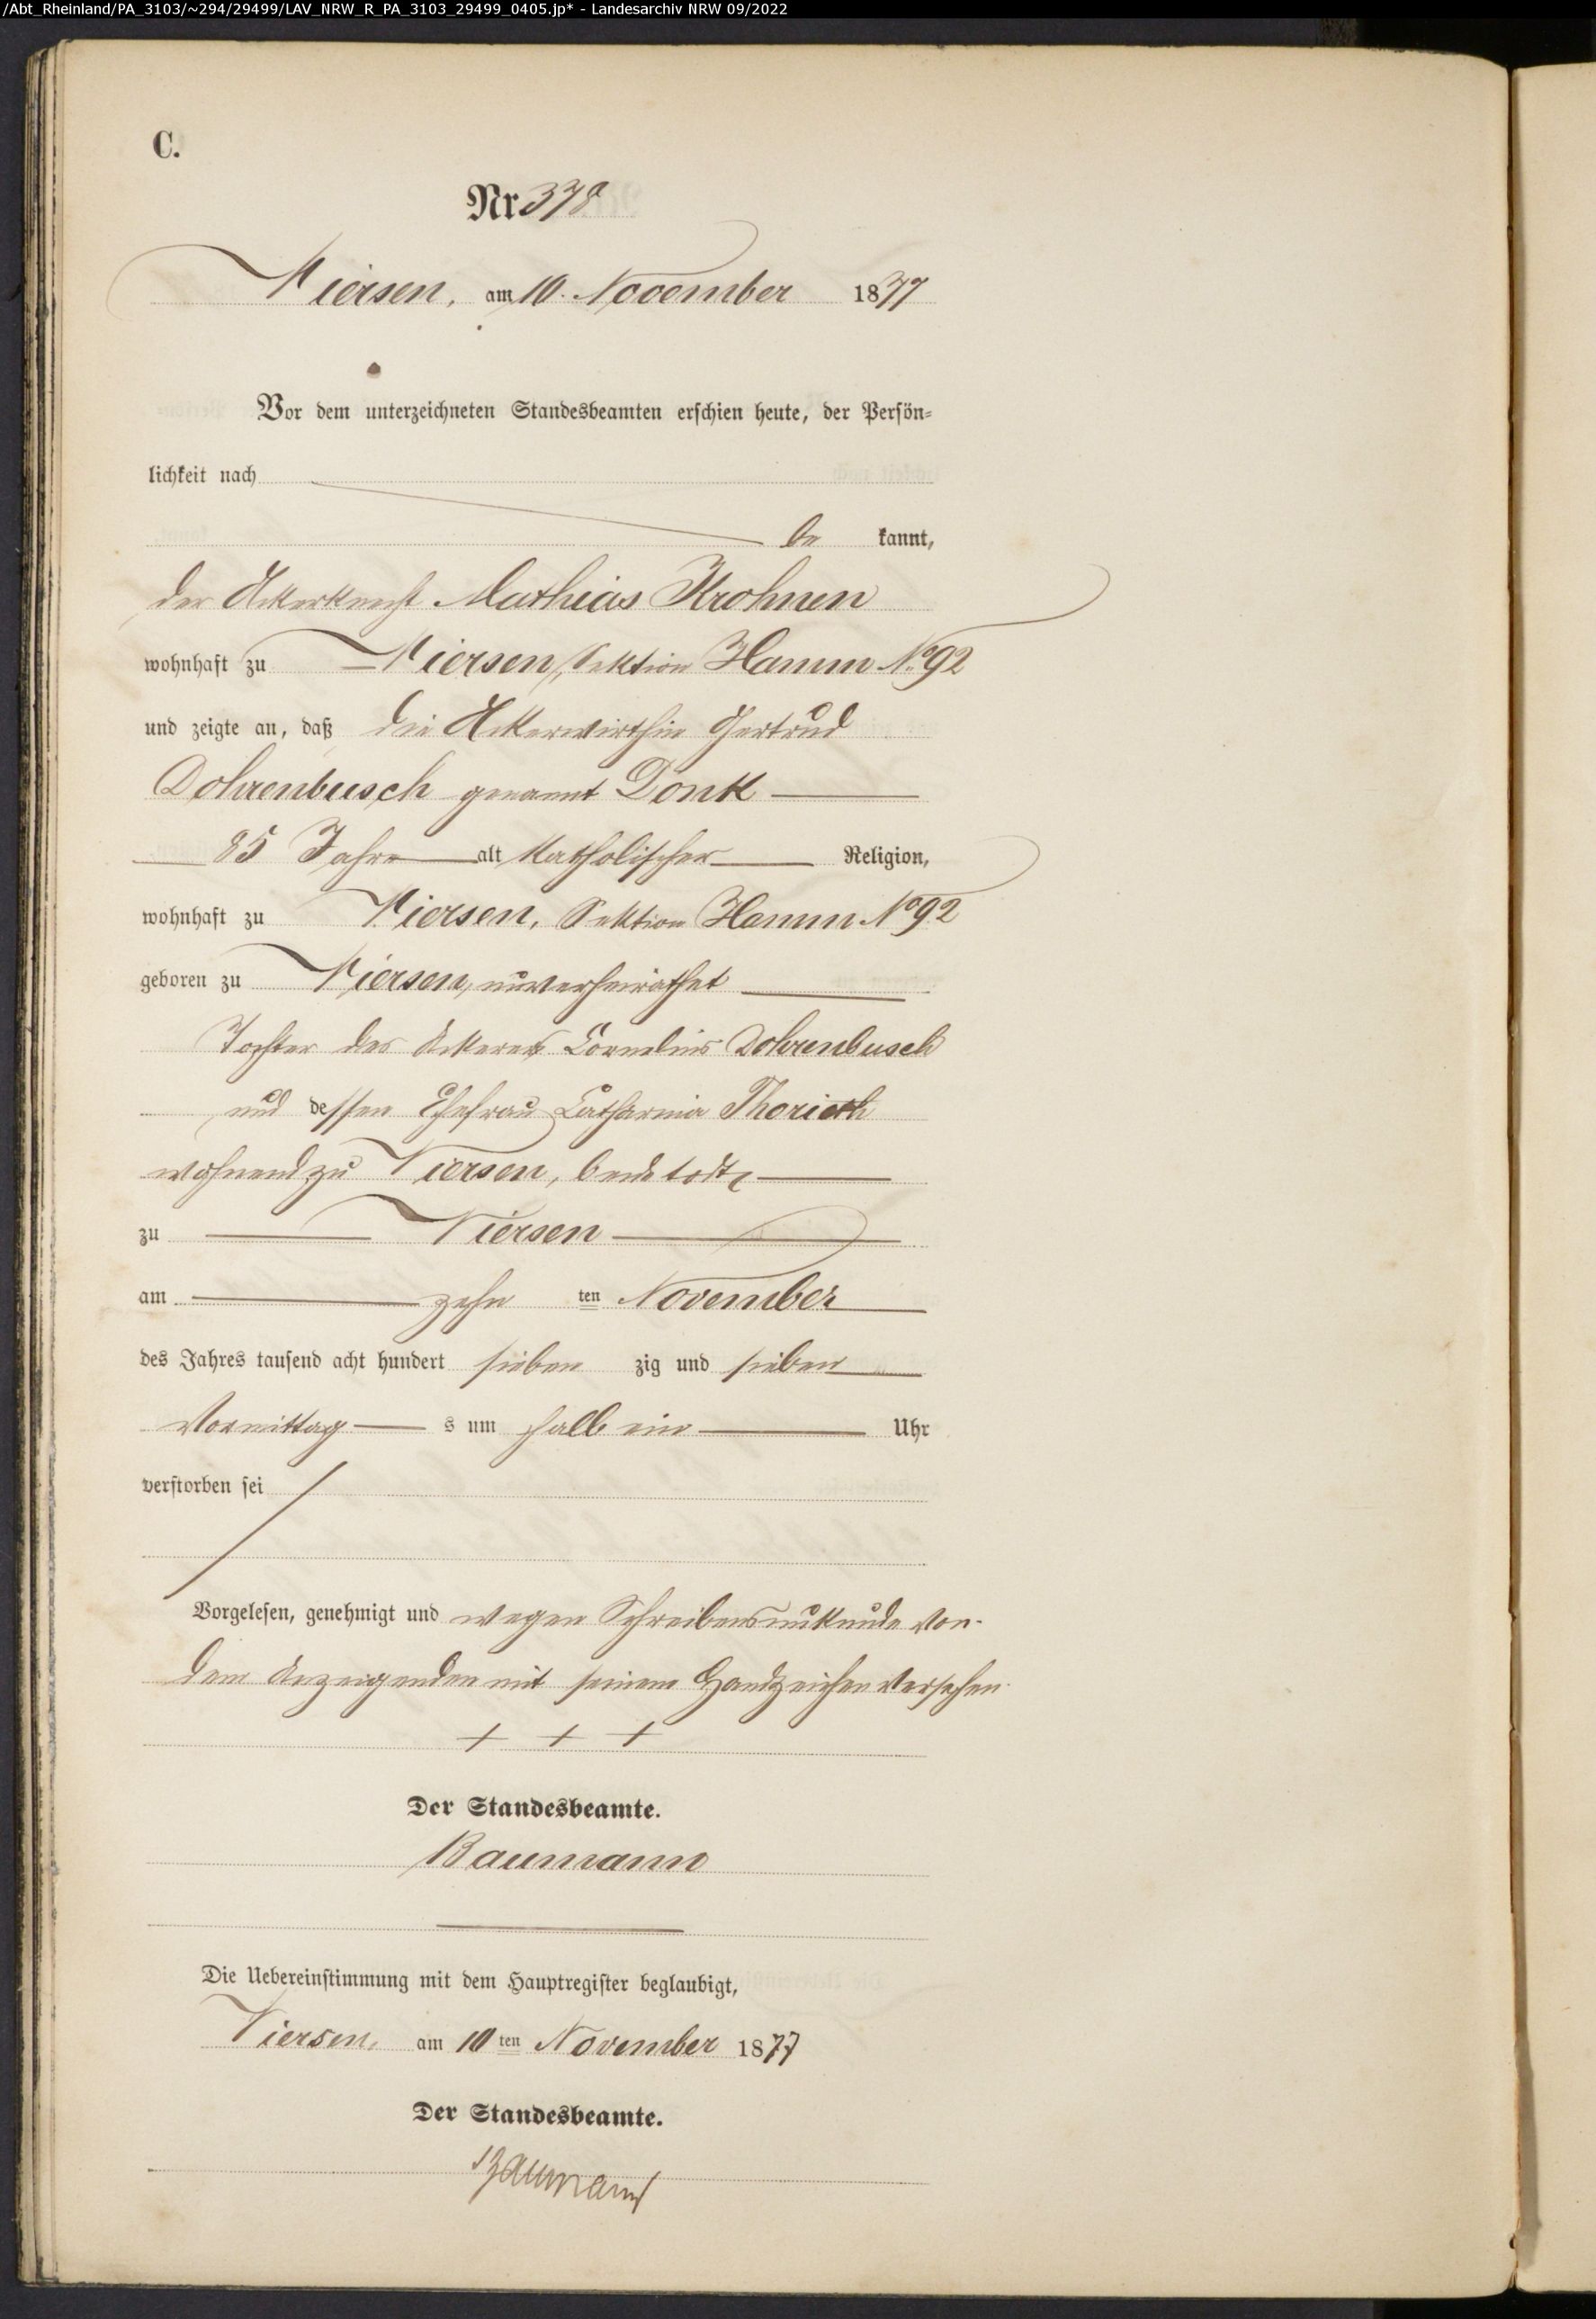 /Abt_Rheinland/PA_3103/~294/29499/LAV_NRW_R_PA_3103_29499_0405.jp* - Landesarchiv NRW 09/2022
C.
Nr 378
Viersen, am 10. November 1877
Vor dem unterzeichneten Standesbeamten erschien heute, der Persön-
lichkeit nach
be kannt,
der Ackerknecht Mathias Krohnen
wohnhaft zu Viersen, Sektion Hamm No 92
und zeigte an, daß die Ackerwirthin Gertrud
Dohrenbusch genannt Donk
85 Jahre alt katholischer Religion,
wohnhaft zu Viersen, Sektion Hamm No 92
geboren zu Viersen, unverheirathet
Tochter des Ackerers Cornelius Dohrenbusch
und dessen Ehefrau Catharina
wohnend zu Viersen, beide todt,
zu Viersen
am zehn ten November
des Jahres tausend acht hundert sieben zig und sieben
Vormittag s um halb ein Uhr
verstorben sei
Vorgelesen, genehmigt und wegen Schreibensunkunde von
dem Anzeigenden mit seinem Handzeichen versehen
+ + +
Der Standesbeamte.
Baumann
Die Uebereinstimmung mit dem Hauptregister beglaubigt,
Viersen, am 10 ten November 1877
Der Standesbeamte.
Baumann